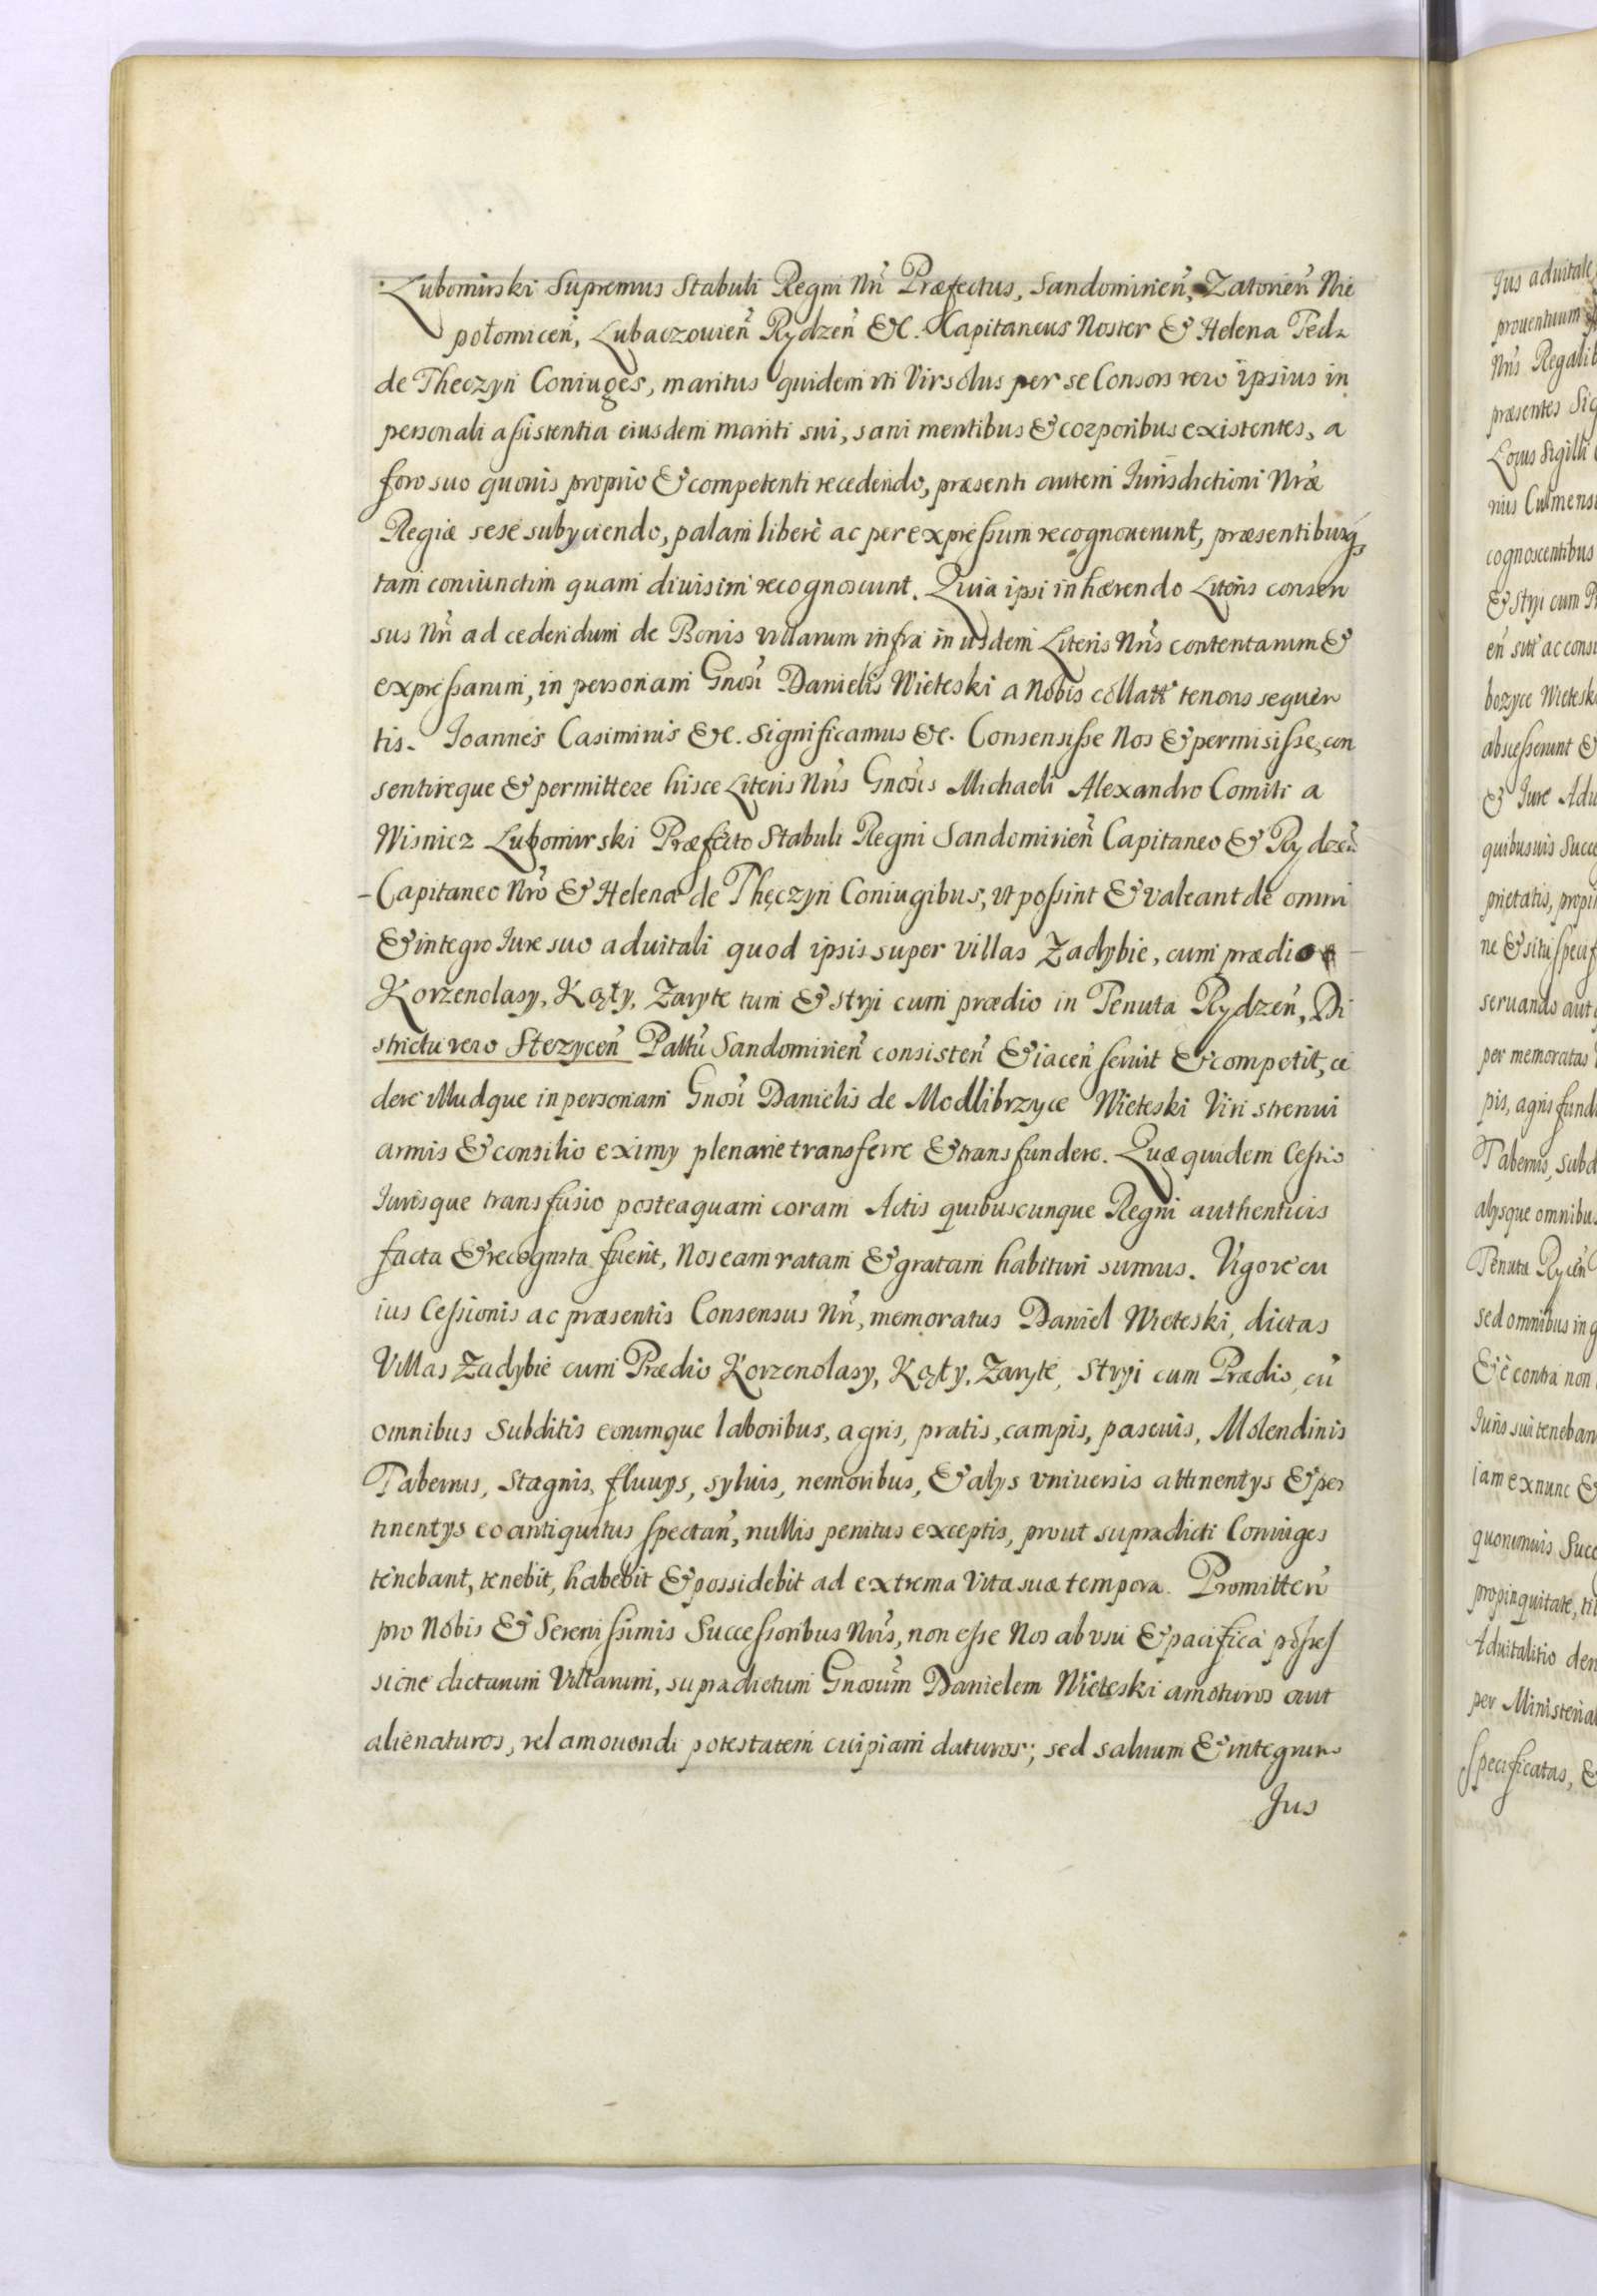 Lubomirski Supremus Stabuli Regni Nri Præfectus, Sandomirien, Zatorien Nie
połomicen, Lubaczouien Rydzen &c. Capitaneus Noster & Helena Ted
de Theczyn Coniuges, maritus quidem uti Vir solus per se Consors vero ipsius in
personali assistentia eiusdem mariti sui, sani mentibus & corporibus existentes, a
foro suo quouis proprio & competenti recedendo, præsenti autem Iurisdictioni Nræ
Regiæ sese subyciendo, palam liberè ac per expressum recognouerunt, præsentibusq;
tam coniunctim quam diuisim recognoscunt. Quia ipsi inhærendo Literis consen
sus Nri ad cedendum de Bonis villarum infra in ijsdem Literis Nris contentarum &
expressarum, in personam Gnosi Danielis Wieteski a Nobis collatt tenoris sequen
tis. Ioannes Casimirus &c. Significamus &c. Consensisse Nos & permisisse, con
sentireque & permittere hisce Literis Nris Gnosis Michaeli Alexandro Comiti a
Wisnicz Lubomirski Præfecto Stabuli Regni Sandomirien Capitaneo & Rydzen
-Capitaneo Nro & Helenæ de Thęczyn Coniugibus, ut possint & valeant de omni
& integro Iure suo aduitali quod ipsis super villas Zadybie, cum prædio
Korzenolasy, Kąty, Zaryte tum & Stryi cum prædio in Tenuta Rydzen, Di
strictu vero Stezycen Pattu Sandomirien consisten & iacen seruit & competit, ce
dere illudque in personam Gnosi Danielis de Modlibrzyce Wieteski Viri strenui
armis & consilio eximy plenarie transferre & transfundere. Quæ quidem Cessio
Iurisque transfusio posteaquam coram Actis quibuscunque Regni authenticis
facta & recognita fuerit, Nos eam ratam & gratam habituri sumus. Vigore cu
ius Cessionis ac præsentis Consensus Nri, memoratus Daniel Wieteski, dictas
Villas Zadybie cum Prædio Korzenolasy, Kąty, Zaryte, Stryi cum Prædio, cu
omnibus Subditis eorumque laboribus, agris, pratis, campis, pascuis, Molendinis
Tabernis, Stagnis, fluuys, syluis, nemoribus, & alys vniuersis attinentys & per
tinentys eo antiquitus spectan, nullis penitus exceptis, prout supradicti Coniuges
tenebant, tenebit, habebit & possidebit ad extrema Vitæ suæ tempora. Promitten
pro Nobis & Serenissimis Successoribus Nris, non esse Nos ab vsu & pacifica posses
sione dictarum Villarum, supradictum Gnosum Danielem Wieteski amoturos aut
alienaturos, vel amouendi potestatem cuipiam daturos; sed saluum & integrum
Jus
Jus aduitale
prouentuum
Nris Regalib
præsentes Sig
Locus Sigilli
rius Culmensi
cognoscentibus
& Stryi cum Pr
en sitt ac consi
brzyce Wietesk
abscesserunt &
& Iure Adu
quibusuis Succ
prietatis, propi
ne & situ specif
seruando aut
per memoratas
pis, agris fund
Tabernis, Subd
alysque omnibus
Tenuta Rycen
sed omnibus in g
& è contra non
Iuris sui teneban
iam ex nunc &
quorumuis Succ
propinquitate, ti
Aduitalitio den
per Ministerial
specificatas, &